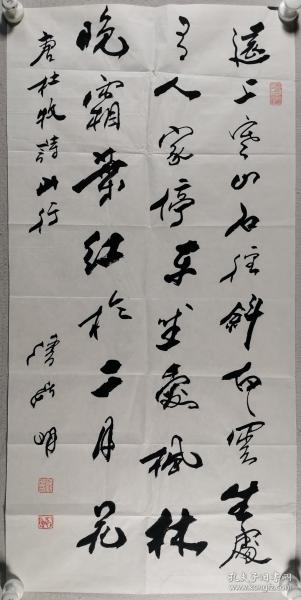 遠上寒山石徑斜白雲生處
有人家停車坐愛楓林
晚霜葉紅於二月花
唐杜牧詩山行
明
孔夫子旧书网